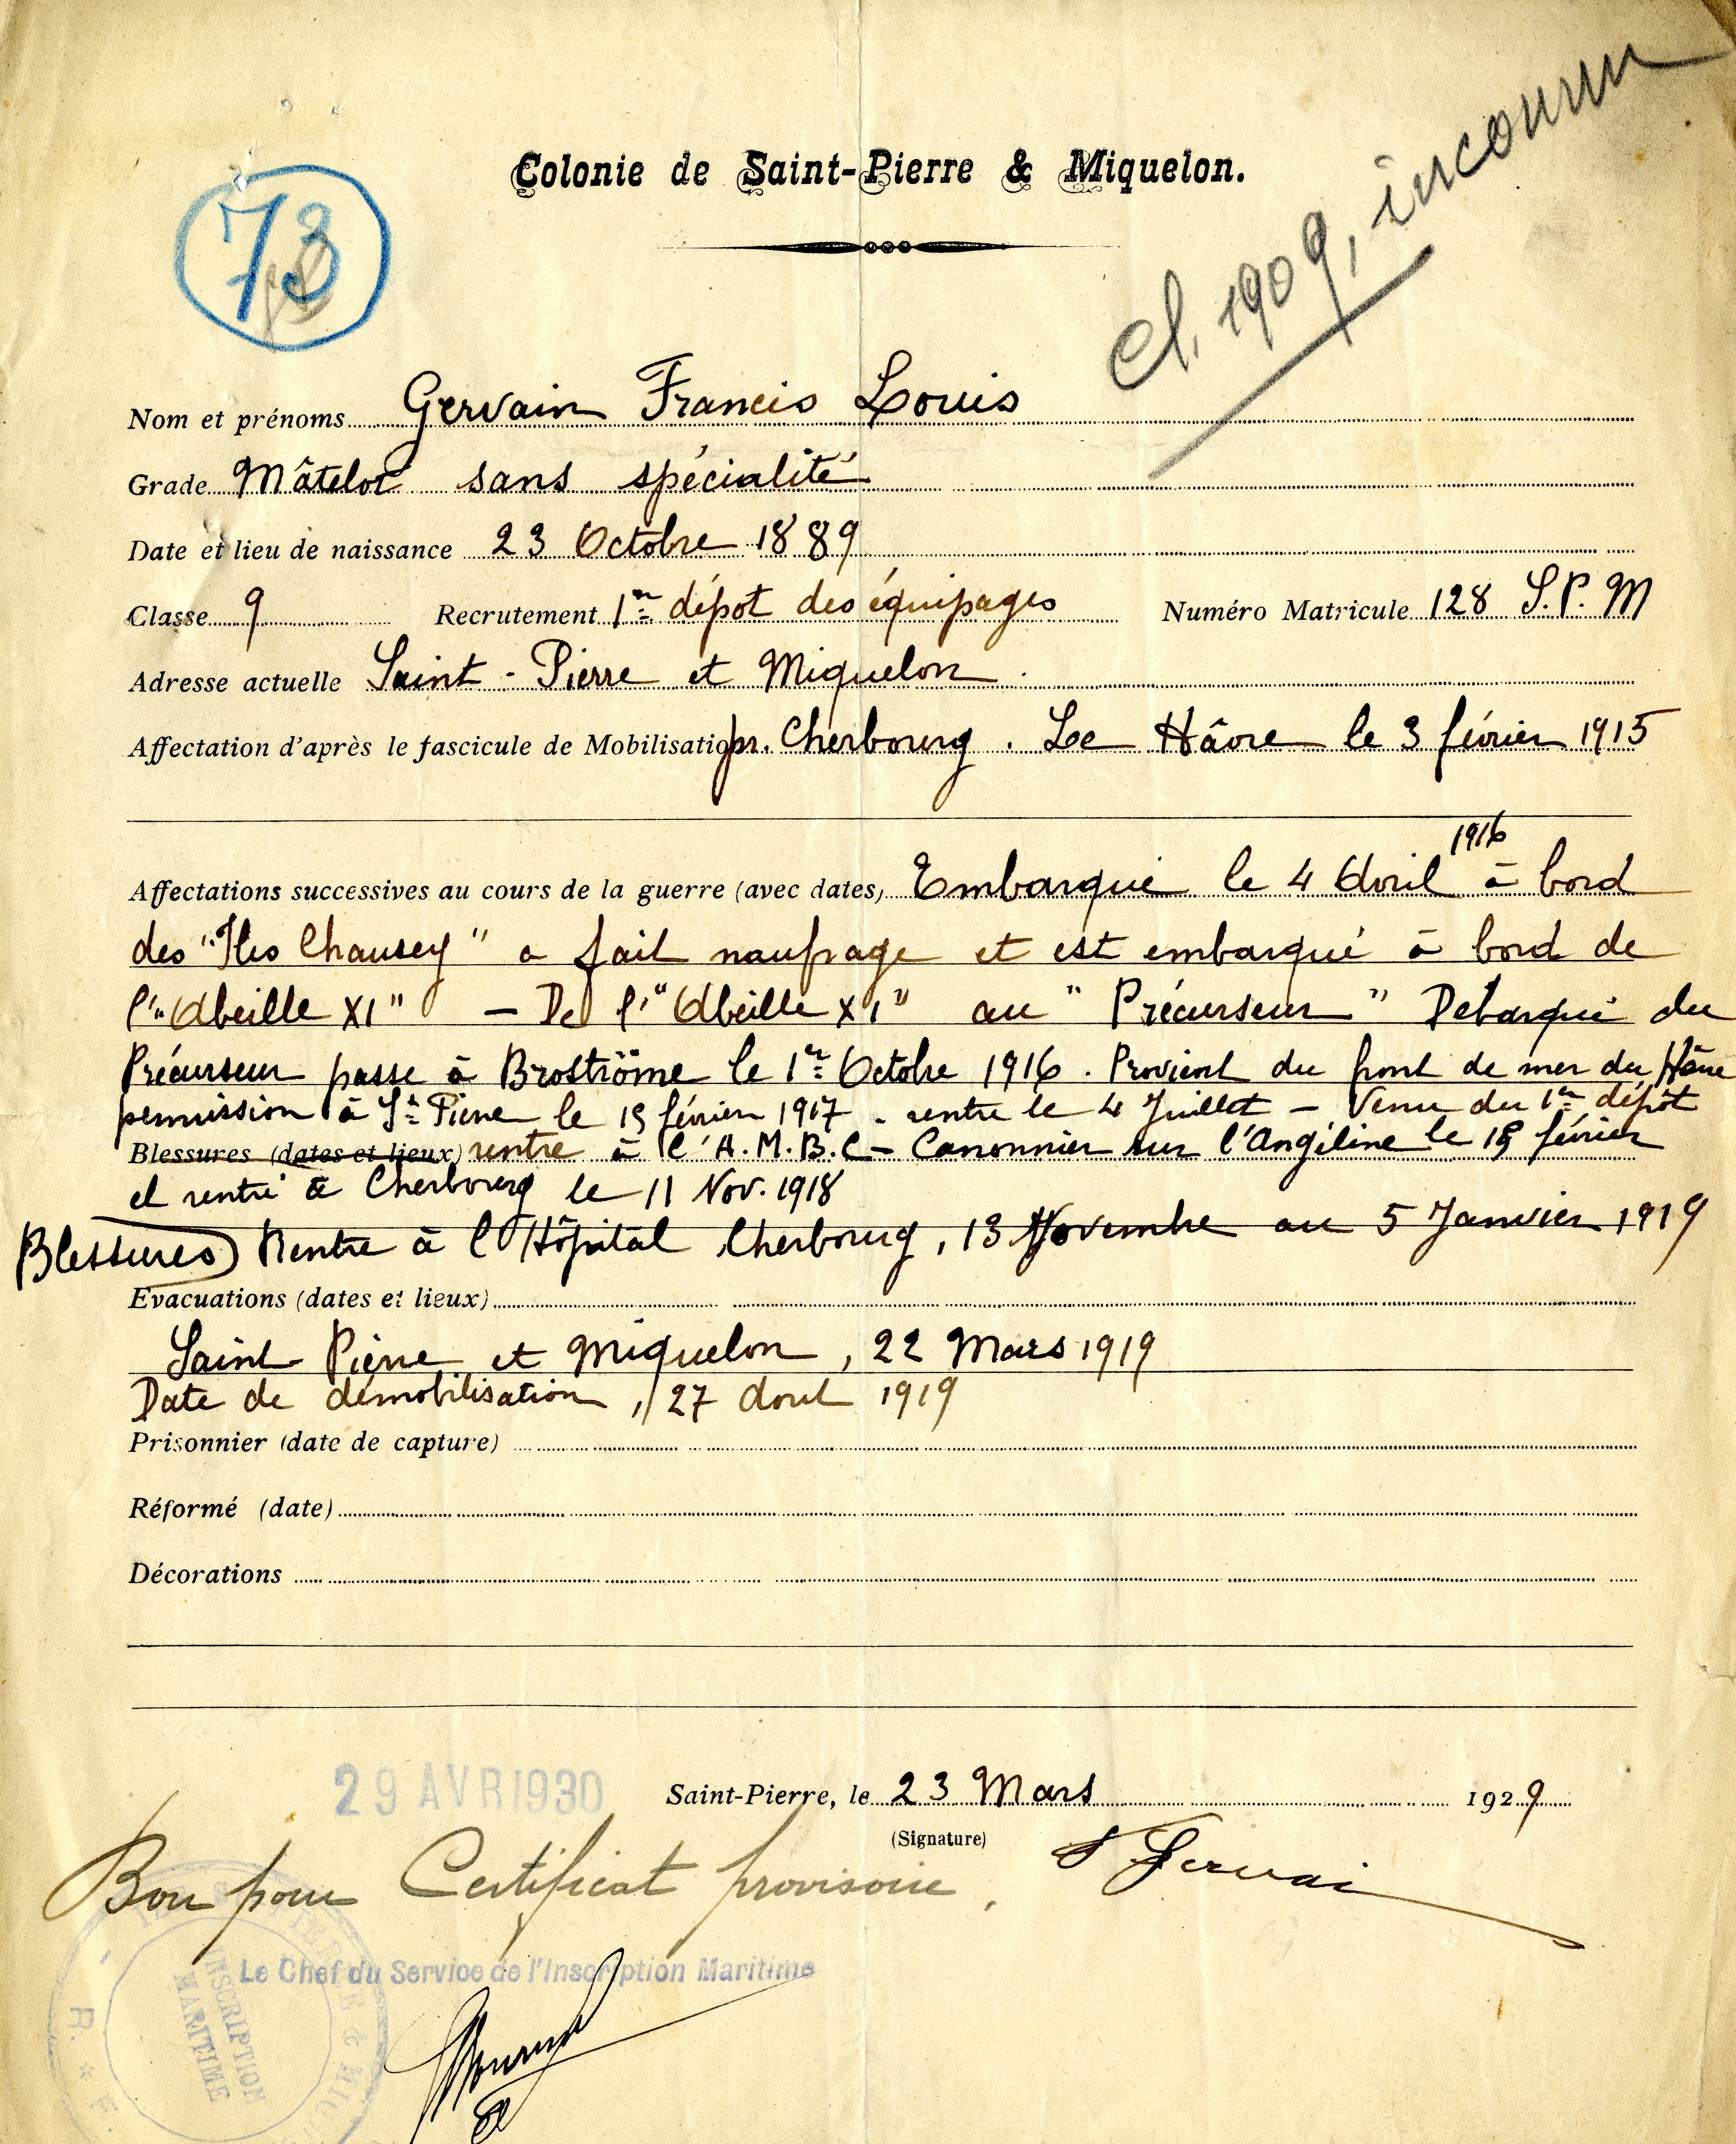 Cl. 1909, inconnu
73
Colonie de Saint-Pierre & Miquelon.
Nom et prénoms Gervain Francis Louis
Grade Mâtelot sans spécialité
Date et lieu de naissance 23 Octobre 1889
Classe 9 Recrutement 1er dépot des équipages Numéro Matricule 128 S.P.M
Adresse actuelle Saint-Pierre et Miquelon.
Affectation d'après le fascicule de Mobilisation pr. Cherbourg. Le Hâvre le 3 février 1915
1916
Affectations successives au cours de la guerre (avec dates) Embarqué le 4 Avril à bord
des "Iles Chausey" a fait naufrage et est embarqué à bord de
l'"Abeille XI" – De l'"Abeille XI" au "Précurseur" Debarqué du
Précurseur passe à Broströme le 1er Octobre 1916. Provient du front de mer du Hâvre
permission à St Pierre le 19 février 1917. rentre le 4 Juillet – Venu du 1er dépôt
Blessures (dates et lieux) rentre à l'A.M.B.C – Canonnier sur l'Angéline le 15 février
et rentré à Cherbourg le 11 Nov. 1918
Blessures) Rentre à l'Hôpital Cherbourg, 13 Novembre au 5 Janvier 1919
Evacuations (dates et lieux)
Saint Pierre et Miquelon, 22 Mars 1919
Date de démobilisation, 27 Aout 1919
Prisonnier (date de capture)
Réformé (date)
Décorations
29 AVR 1930 Saint-Pierre, le 23 Mars 1929
(Signature) Gervai
Bon pour Certificat provisoire.
Le Chef du Service de l'Inscription Maritime
INSCRIPTION
MARITIME
R. * F.